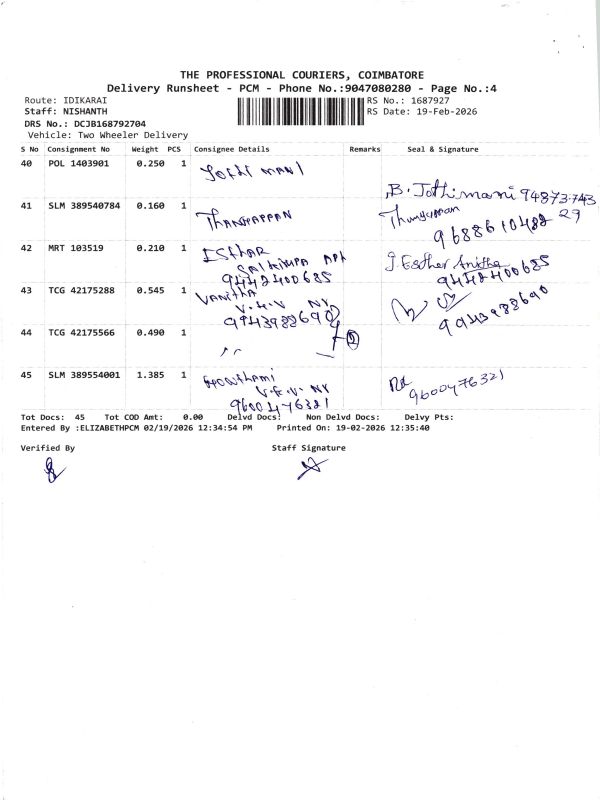 THE PROFESSIONAL COURIERS, COIMBATORE
Delivery Runsheet - PCM - Phone No.:9047080280 - Page No.:4
Route: IDIKARAI
RS No.: 1687927
Staff: NISHANTH
RS Date: 19-Feb-2026
DRS No.: DCJB168792704
Vehicle: Two Wheeler Delivery
S No Consignment No Weight PCS Consignee Details Remarks Seal & Signature
40 POL 1403901 0.250 1 JOTHI MANI
B. Jothimani 94873743
29
41 SLM 389540784 0.160 1 THANGAPPAN Thangappan
9688610488
42 MRT 103519 0.210 1 ESTHAR J. Esther Anitha
APT
9442400685 9442400685
43 TCG 42175288 0.545 1 VANITHA
V.K.V NY
9943988690 9943988690
44 TCG 42175566 0.490 1 〃 2
45 SLM 389554001 1.385 1 Gowthami
V.K.V. NY
9600476321 9600476321
Tot Docs: 45 Tot COD Amt: 0.00 Delvd Docs: Non Delvd Docs: Delvy Pts:
Entered By :ELIZABETHPCM 02/19/2026 12:34:54 PM Printed On: 19-02-2026 12:35:40
Verified By Staff Signature